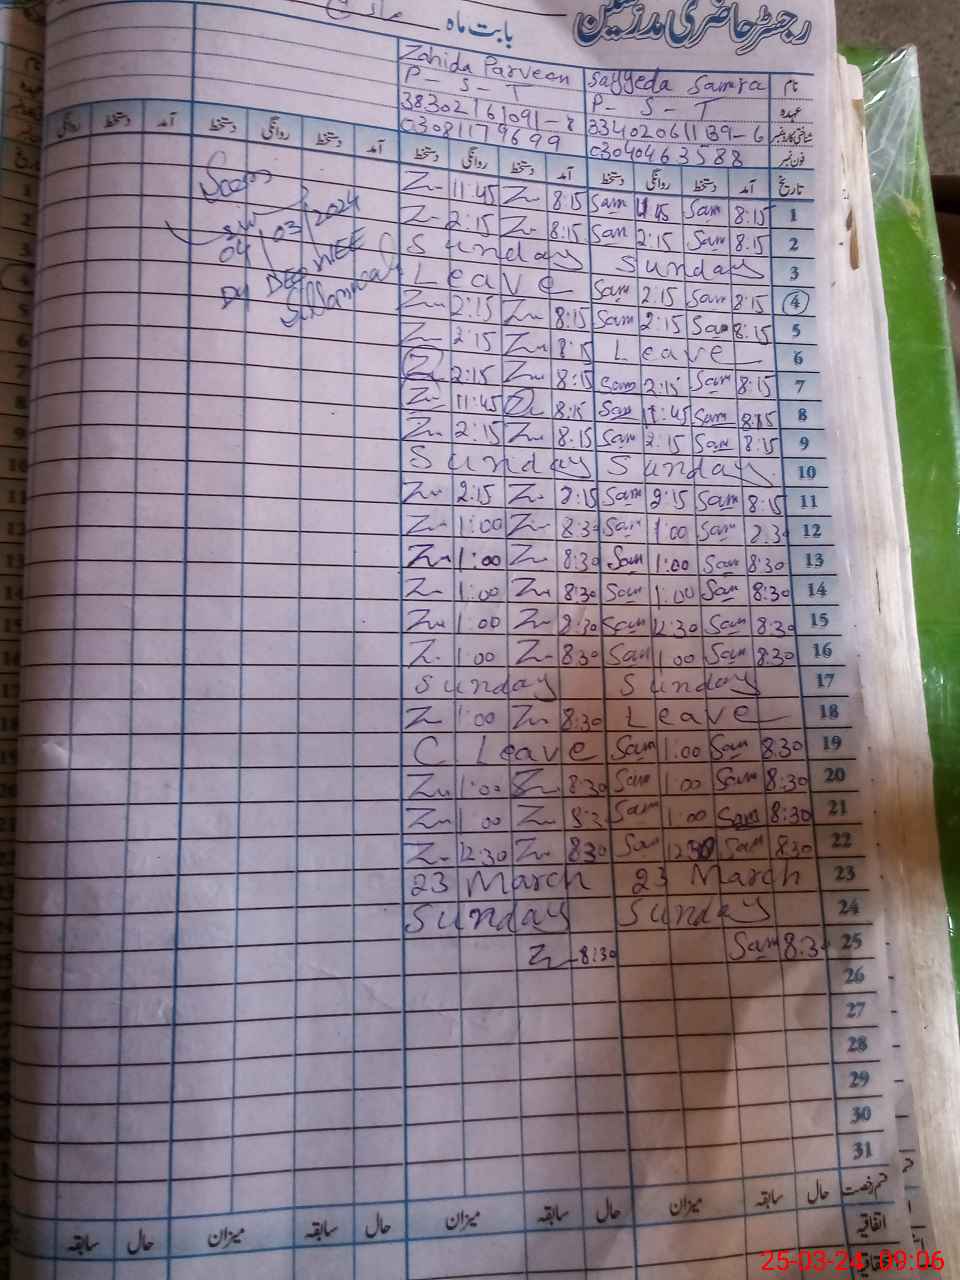 رجسٹر حاضری مدرسین
بابت ماہ مارچ
نام Sayyeda Samra Zahida Parveen
عہدہ P-S-T P-S-T
شناختی کارڈ نمبر 33402061139-6 38302161091-8
فون نمبر 03040463588 03081179699
تاریخ آمد دستخط روانگی دستخط آمد دستخط روانگی دستخط آمد دستخط روانگی دستخط آمد دستخط روانگی
Z 11:45 Z 8:15 Sam 11:45 Sam 8:15 1
Z 2:15 Z 8:15 Sam 2:15 Sam 8:15 2
Sunday Sunday 3
Leave Sam 2:15 Sam 8:15 4
Z 2:15 Z 8:15 Sam 2:15 Sam 8:15 5
Z 2:15 Z 8:15 Leave 6
Z 2:15 Z 8:15 Sam 2:15 Sam 8:15 7
Z 11:45 Z 8:15 Sam 11:45 Sam 8:15 8
Z 2:15 Z 8:15 Sam 2:15 Sam 8:15 9
Sunday Sunday 10
Z 2:15 Z 8:15 Sam 2:15 Sam 8:15 11
Z 1:00 Z 8:30 Sam 1:00 Sam 8:30 12
Z 1:00 Z 8:30 Sam 1:00 Sam 8:30 13
Z 1:00 Z 8:30 Sam 1:00 Sam 8:30 14
Z 1:00 Z 8:30 Sam 12:30 Sam 8:30 15
Z 1:00 Z 8:30 Sam 1:00 Sam 8:30 16
Sunday Sunday 17
Z 1:00 Z 8:30 Leave 18
C Leave Sam 1:00 Sam 8:30 19
Z 1:00 Z 8:30 Sam 1:00 Sam 8:30 20
Z 1:00 Z 8:30 Sam 1:00 Sam 8:30 21
Z 12:30 Z 8:30 Sam 12:30 Sam 8:30 22
23 March 23 March 23
Sunday Sunday 24
Z 8:30 Sam 8:30 25
26
27
28
29
30
31
Seen
04/03/2024
Dy DEO WEE
قسم رخصت حال سابقہ میزان حال سابقہ میزان حال سابقہ میزان حال سابقہ
اتفاقیہ
25-03-24 09:06